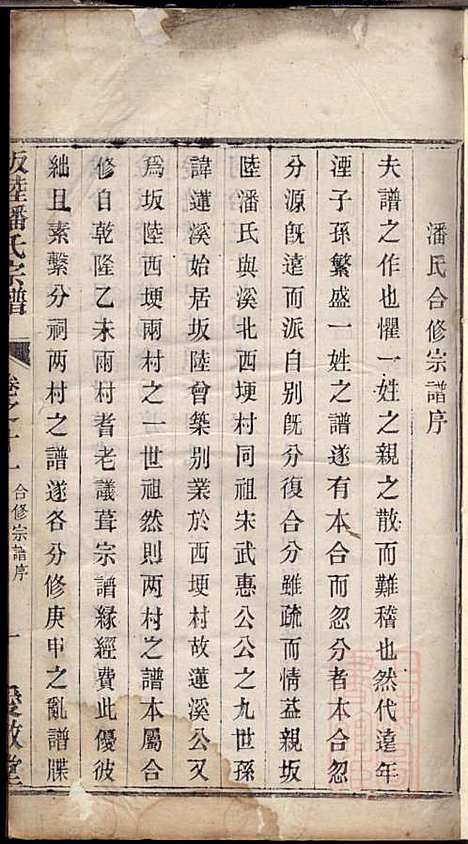 潘氏合修宗譜序
夫譜之作也懼一姓之親之散而難稽也然代遠年
湮子孫繁盛一姓之譜遂有本合而忽分者本合忽
分源旣遠而派自別旣分復合分雖疏而情益親坂
陸潘氏與溪北西埂村同祖宋武惠公公之九世孫
諱蓮溪始居坂陸曾築別業於西埂村故蓮溪公又
爲坂陸西埂兩村之一世祖然則两村之譜本屬合
修自乾隆乙未兩村耆老議葺宗譜緣經費此優彼
絀且素繫分祠两村之譜遂各分修庚申之亂譜牒
坂陸潘氏宗譜
卷之十一
合修宗譜序
一
愛敬堂